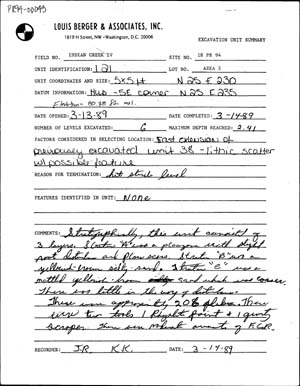 PR94-00093
LOUIS BERGER & ASSOCIATES, INC.
1819 H Street, NW - Washington, D.C. 20006
EXCAVATION UNIT SUMMARY
FIELD NO. INDIAN CREEK IV SITE 18 PR 94
UNIT IDENTIFICATION: 121 LOT NO. AREA 3
UNIT COORDINATES AND SIZE: 5x5 ft N25 E230
DATUM INFORMATION: Hub - SE corner N25 E235
Elevation
DATE OPENED: 3-13-89 DATE COMPLETED: 3-14-89
NUMBER OF LEVELS EXCAVATED: 6 MAXIMUM DEPTH REACHED: 2.41
FACTORS CONSIDERED IN SELECTING LOCATION: East extension of
previously excavated unit 38 - lithic scatter
w/ possible feature
REASON FOR TERMINATION: sterile level
FEATURES IDENTIFIED IN UNIT: None
COMMENTS: Stratigraphically, this unit consisted of
3 layers. Stratum "A" was a plowzone with slight
root disturbance and plow scars. Stratum "B" was a
yellowish-brown silty-sand. Stratum "C" was a
mottled yellowish-brown sand which was coarser.
There was little in the way of disturbance.
There were approximately 208 flakes. There
were two tools 1 Rhyolite point & 1 quartz
scraper. amounts of FCR.
RECORDER: J.R. K.K. DATE: 3-14-89